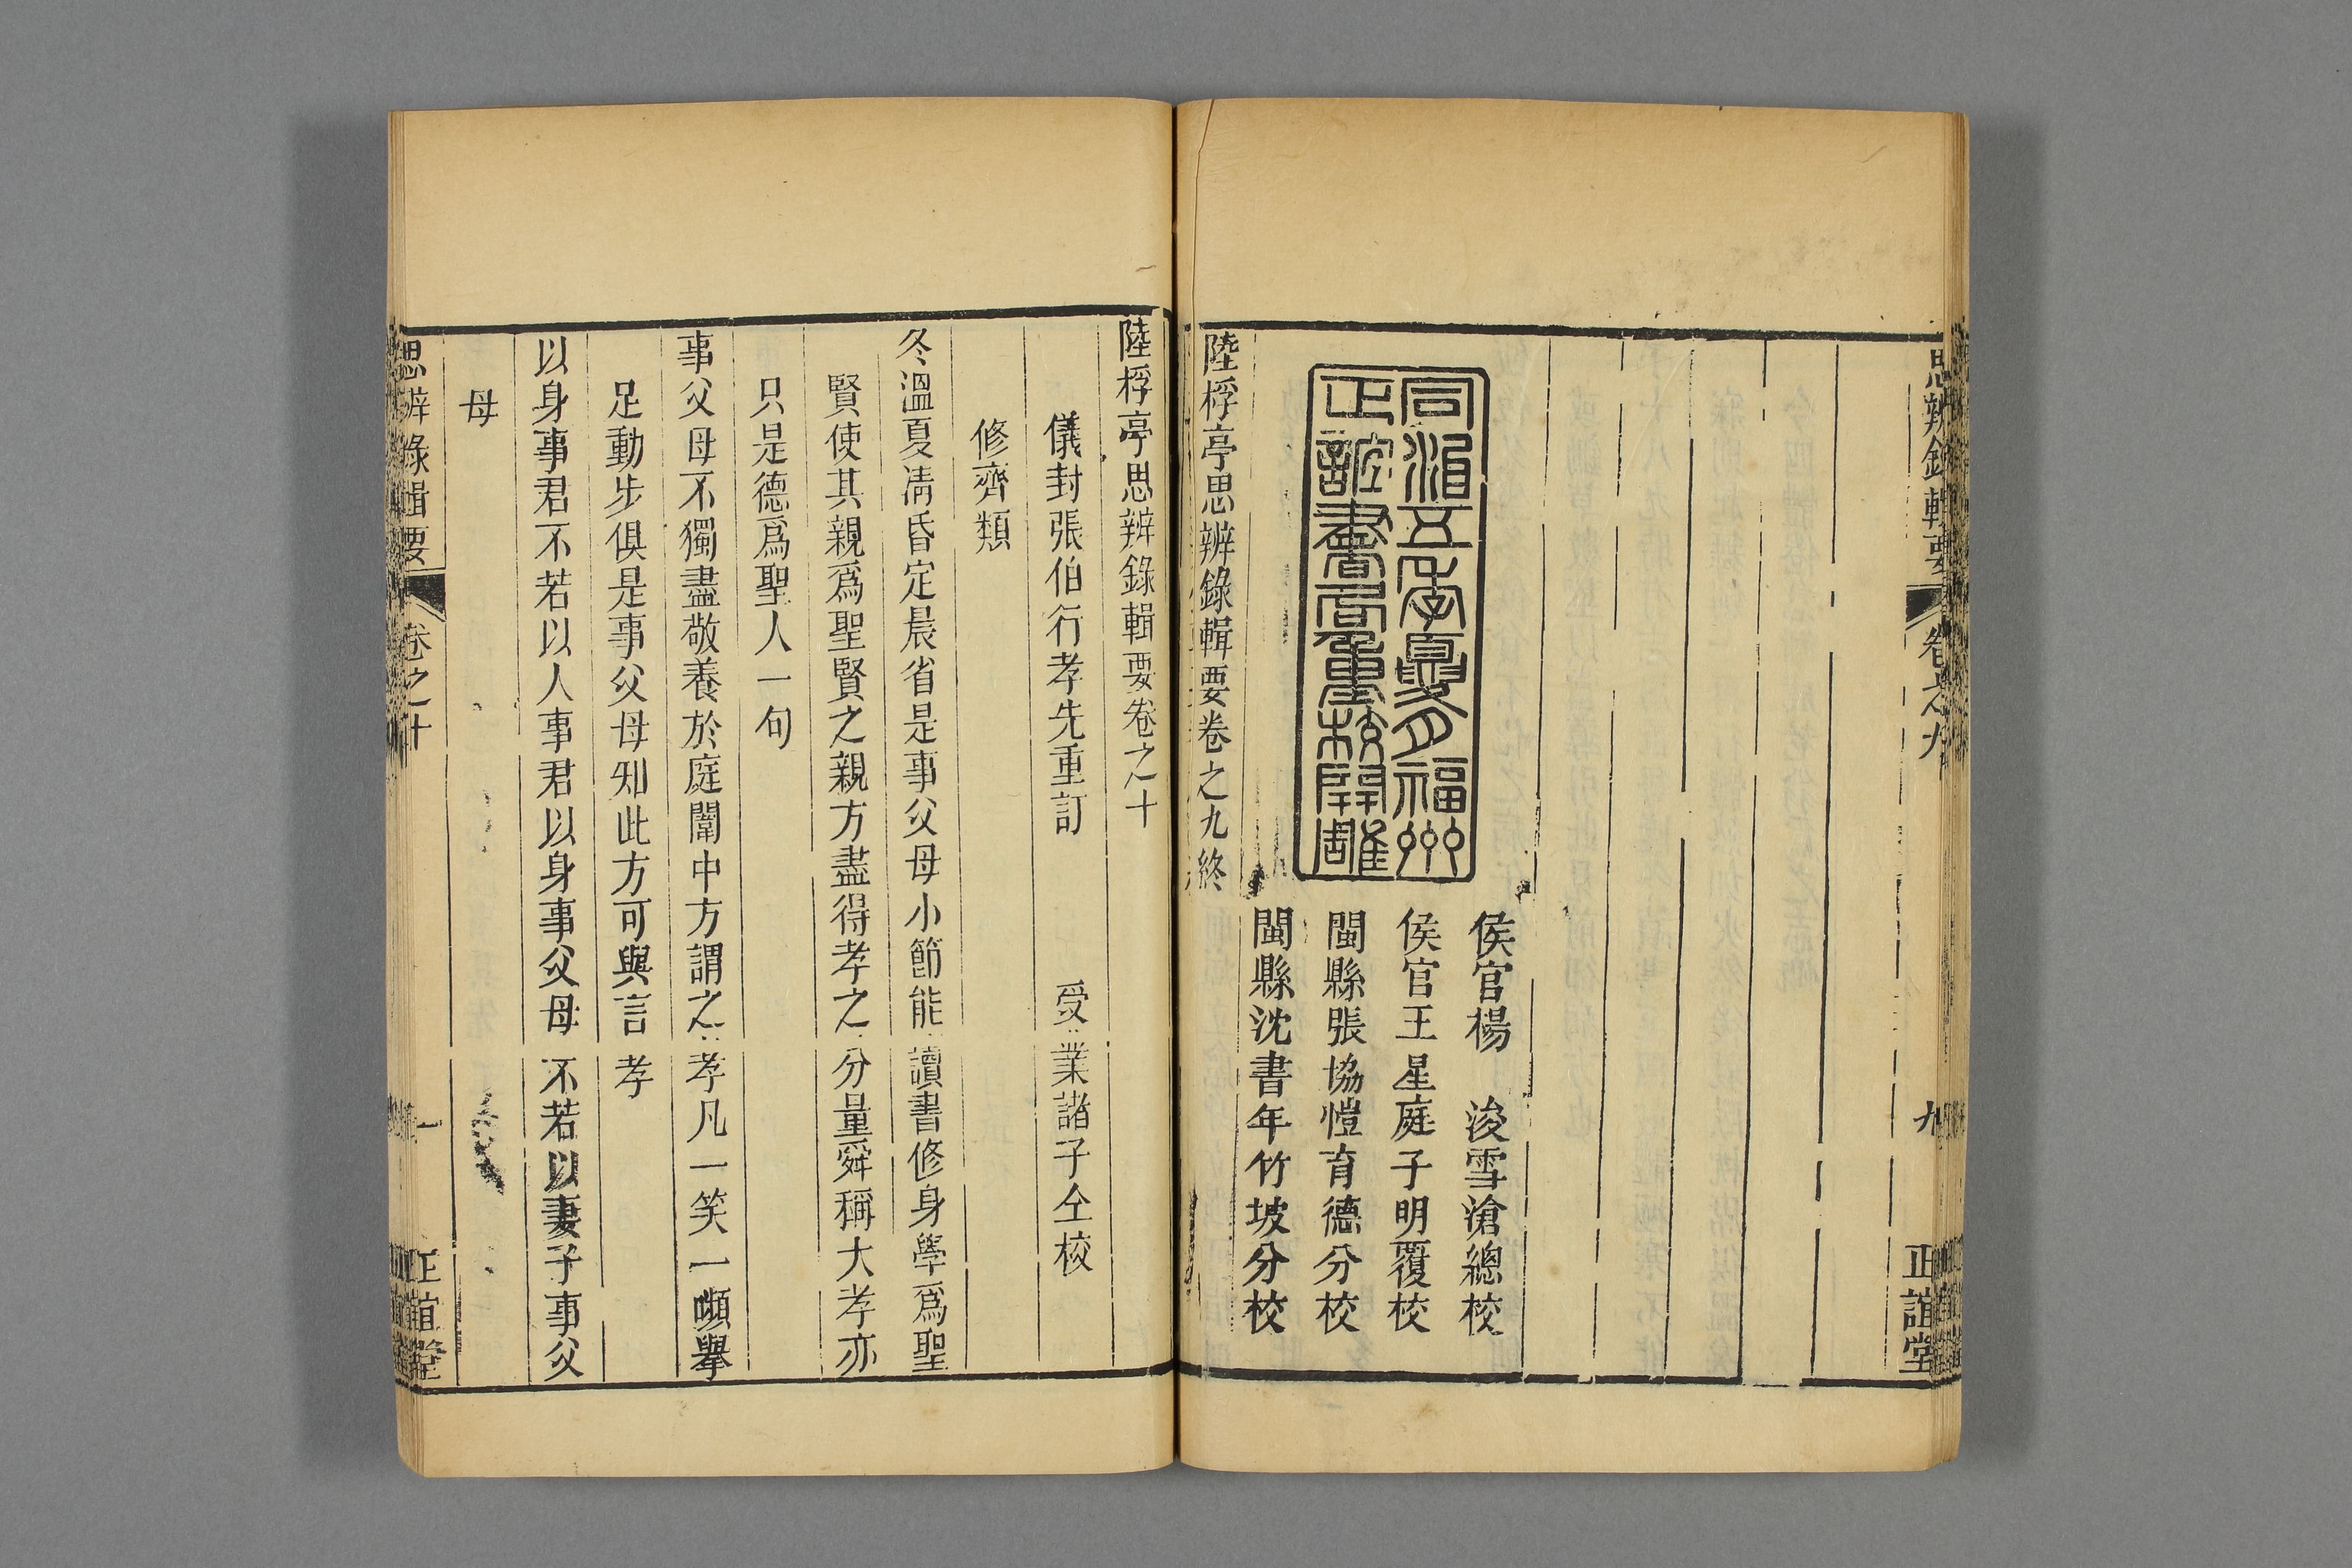 思辨錄輯要 卷之九 九 正誼堂
同治五年夏月福州
正誼書局重校開雕
侯官楊 浚雪滄總校
侯官王星庭子明覆校
閩縣張協愷育德分校
閩縣沈書年竹坡分校
陸桴亭思辨錄輯要卷之九終
陸桴亭思辨錄輯要卷之十
儀封張伯行孝先重訂 受業諸子仝校
修齊類
冬溫夏凊昏定晨省是事父母小節能讀書修身學爲聖
賢使其親爲聖賢之親方盡得孝之分量舜稱大孝亦
只是德爲聖人一句
事父母不獨盡敬養於庭闈中方謂之孝凡一笑一嚬舉
足動步俱是事父母知此方可與言孝
以身事君不若以人事君以身事父母不若以妻子事父
母
思辨錄輯要 卷之十 一 正誼堂